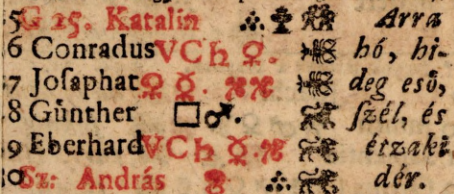 5 G 25. Katalin Arra
6 Conradus VC♄ ♀. hó, hi-
7 Joſaphat ♀ ☿. deg eső,
8 Günther □♂. ſzél, és
9 Eberhard VC♄ ☿. étzaki
30 Sz: András dér.